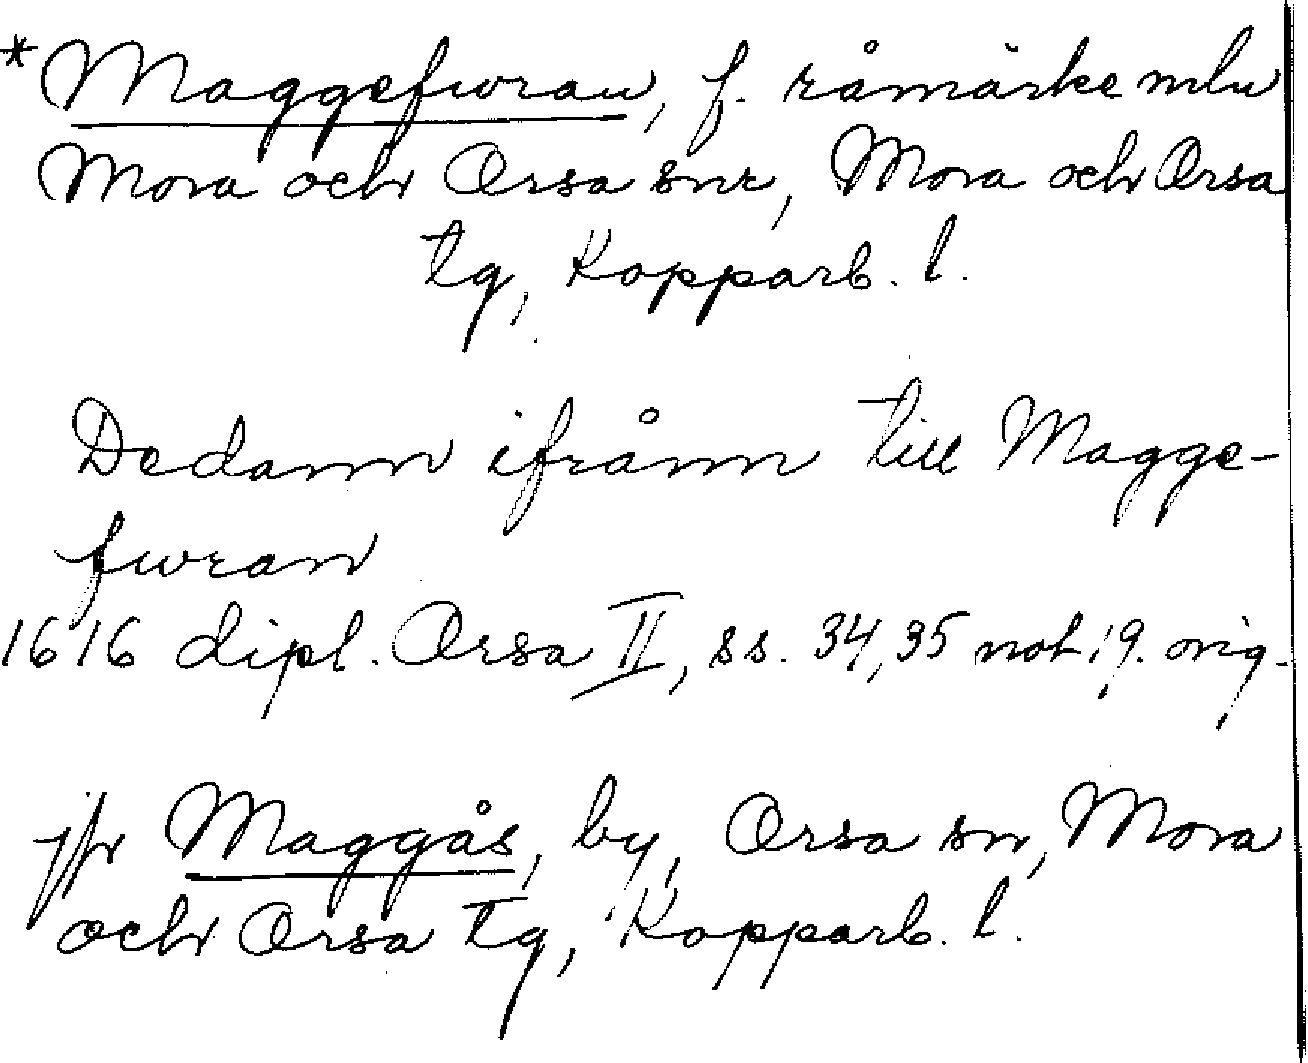 *Maggefwran, f. råmärke mln
Mora och Orsa snr, Mora och Orsa
tg, Kopparb. l.
Dedann ifrånn till Magge-
fwran
1616 dipl. Orsa II, ss. 34, 35 not 19. orig.
jfr Maggås, by, Orsa sn, Mora
och Orsa tg, Kopparb. l.